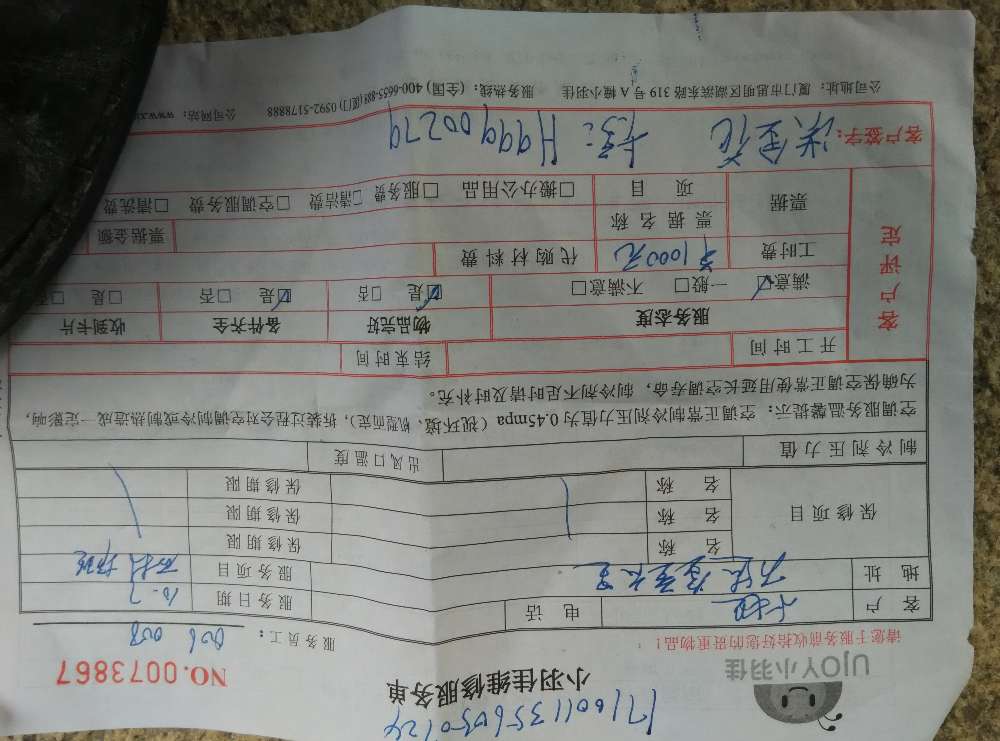 1716011356050124
小羽佳维修服务单
UJOY小羽佳
NO.0073867
请您于服务前收拾好您的贵重物品！
服务员工：006 008
客户 电话 服务日期 10.7
地址 服务项目
保修项目 名称 保修期限
名称 保修期限
名称 保修期限
制冷剂压力值 出风口温度
空调服务温馨提示：空调正常制冷剂压力值为0.45mpa（视环境、机型而定），拆装过程会对空调制冷或制热造成一定影响，
为确保空调正常使用延长空调寿命，制冷剂不足时请及时补充。
开工时间 结束时间
客户评定
服务态度 物品完好 备件齐全 收到卡片
满意☑ 一般☐ 不满意☐ ☑是 ☐否 ☑是 ☐否 ☐是 ☐否
工时费 1000元 代购材料费
票据 票据名称 票据金额
项目 ☐搬办公用品 ☐服务费 ☐清洁费 ☐空调服务费 ☐清洗费
客户签字： 洪金花 卡号：H99900279
公司地址：厦门市思明区湖滨东路319号A幢小羽佳 服务热线：(全国) 400-6655-888 (厦门) 0592-5178888 公司网站：www.xi